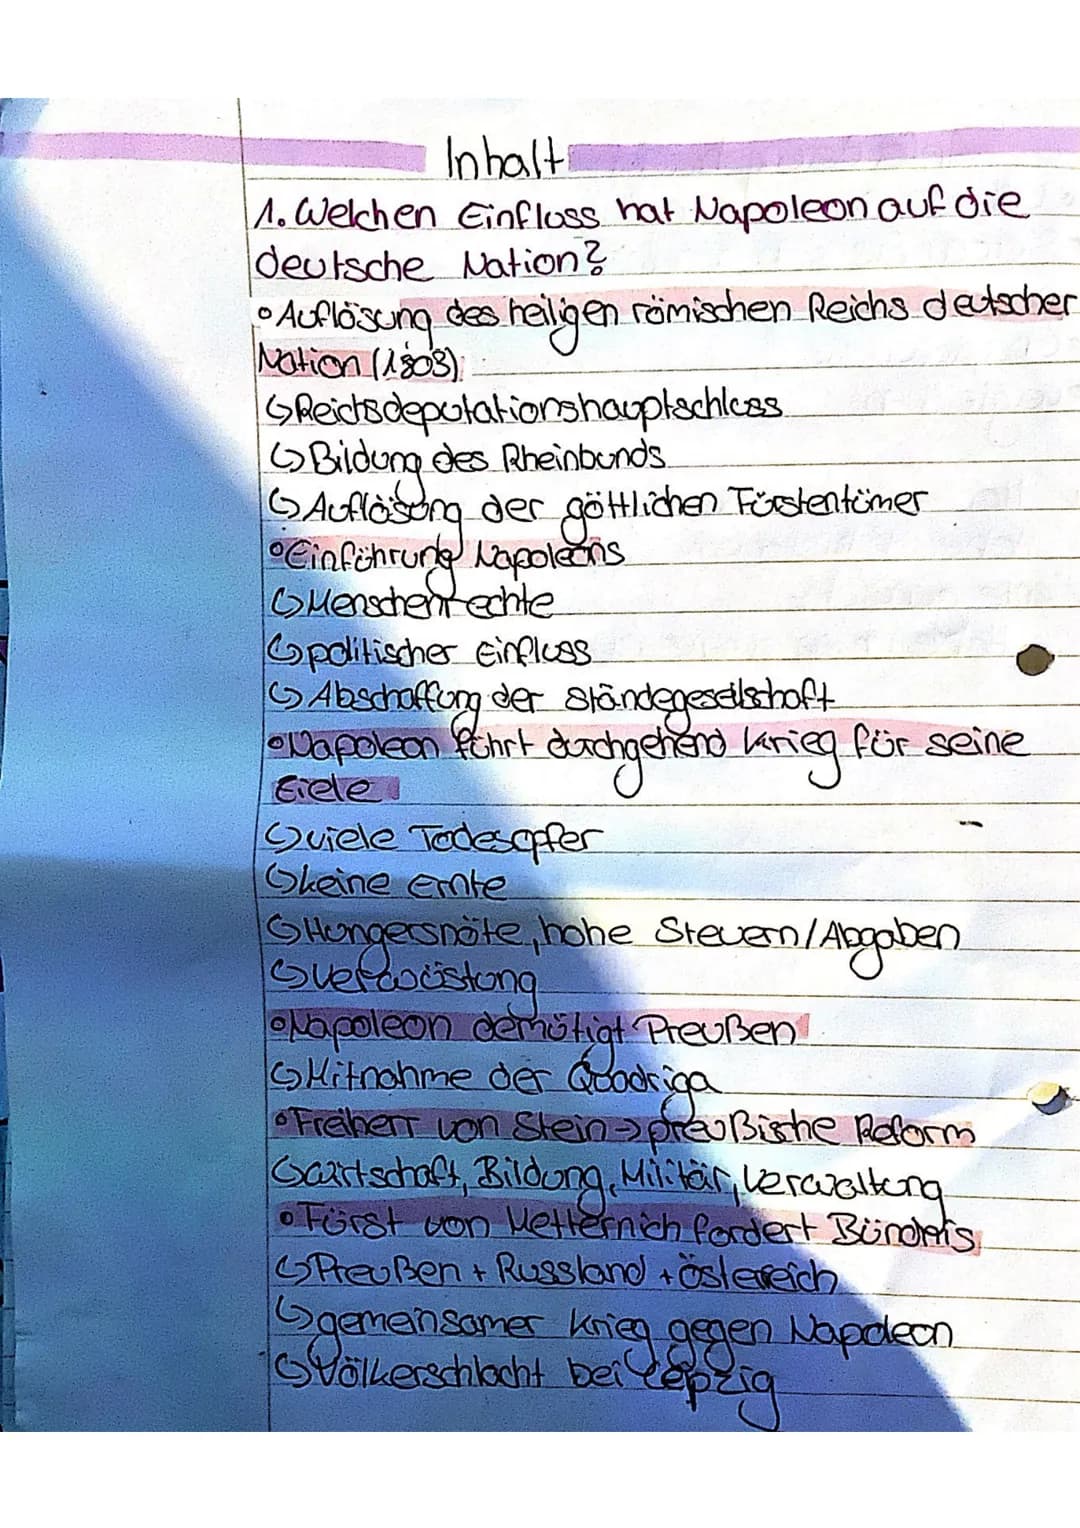 Inhalt
1. Welchen Einfluss hat Napoleon auf die
deutsche Nation?
• Auflösung des heiligen römischen Reichs deutscher
Nation (1803):
↳ Reichsdeputationshauptschluss
↳ Bildung des Rheinbunds
↳ Auflösung der göttlichen Fürstentümer
• Einführung Napoleons
↳ Menschenrechte
↳ politischer Einfluss
↳ Abschaffung der Ständegesellschaft
• Napoleon führt durchgehend Krieg für seine
Ziele
↳ viele Todesopfer
↳ keine ernte
↳ Hungersnöte, hohe Steuern/Abgaben
↳ verwüstung
• Napoleon demütigt Preußen
↳ Mitnahme der Quadriga
• Freiherr von Stein → preußische Reform
↳ wirtschaft, Bildung, Militär, Verwaltung
• Fürst von Metternich fordert Bündnis
↳ Preußen + Russland + Östereich
↳ gemeinsamer Krieg gegen Napoleon
↳ Völkerschlacht bei Lepzig